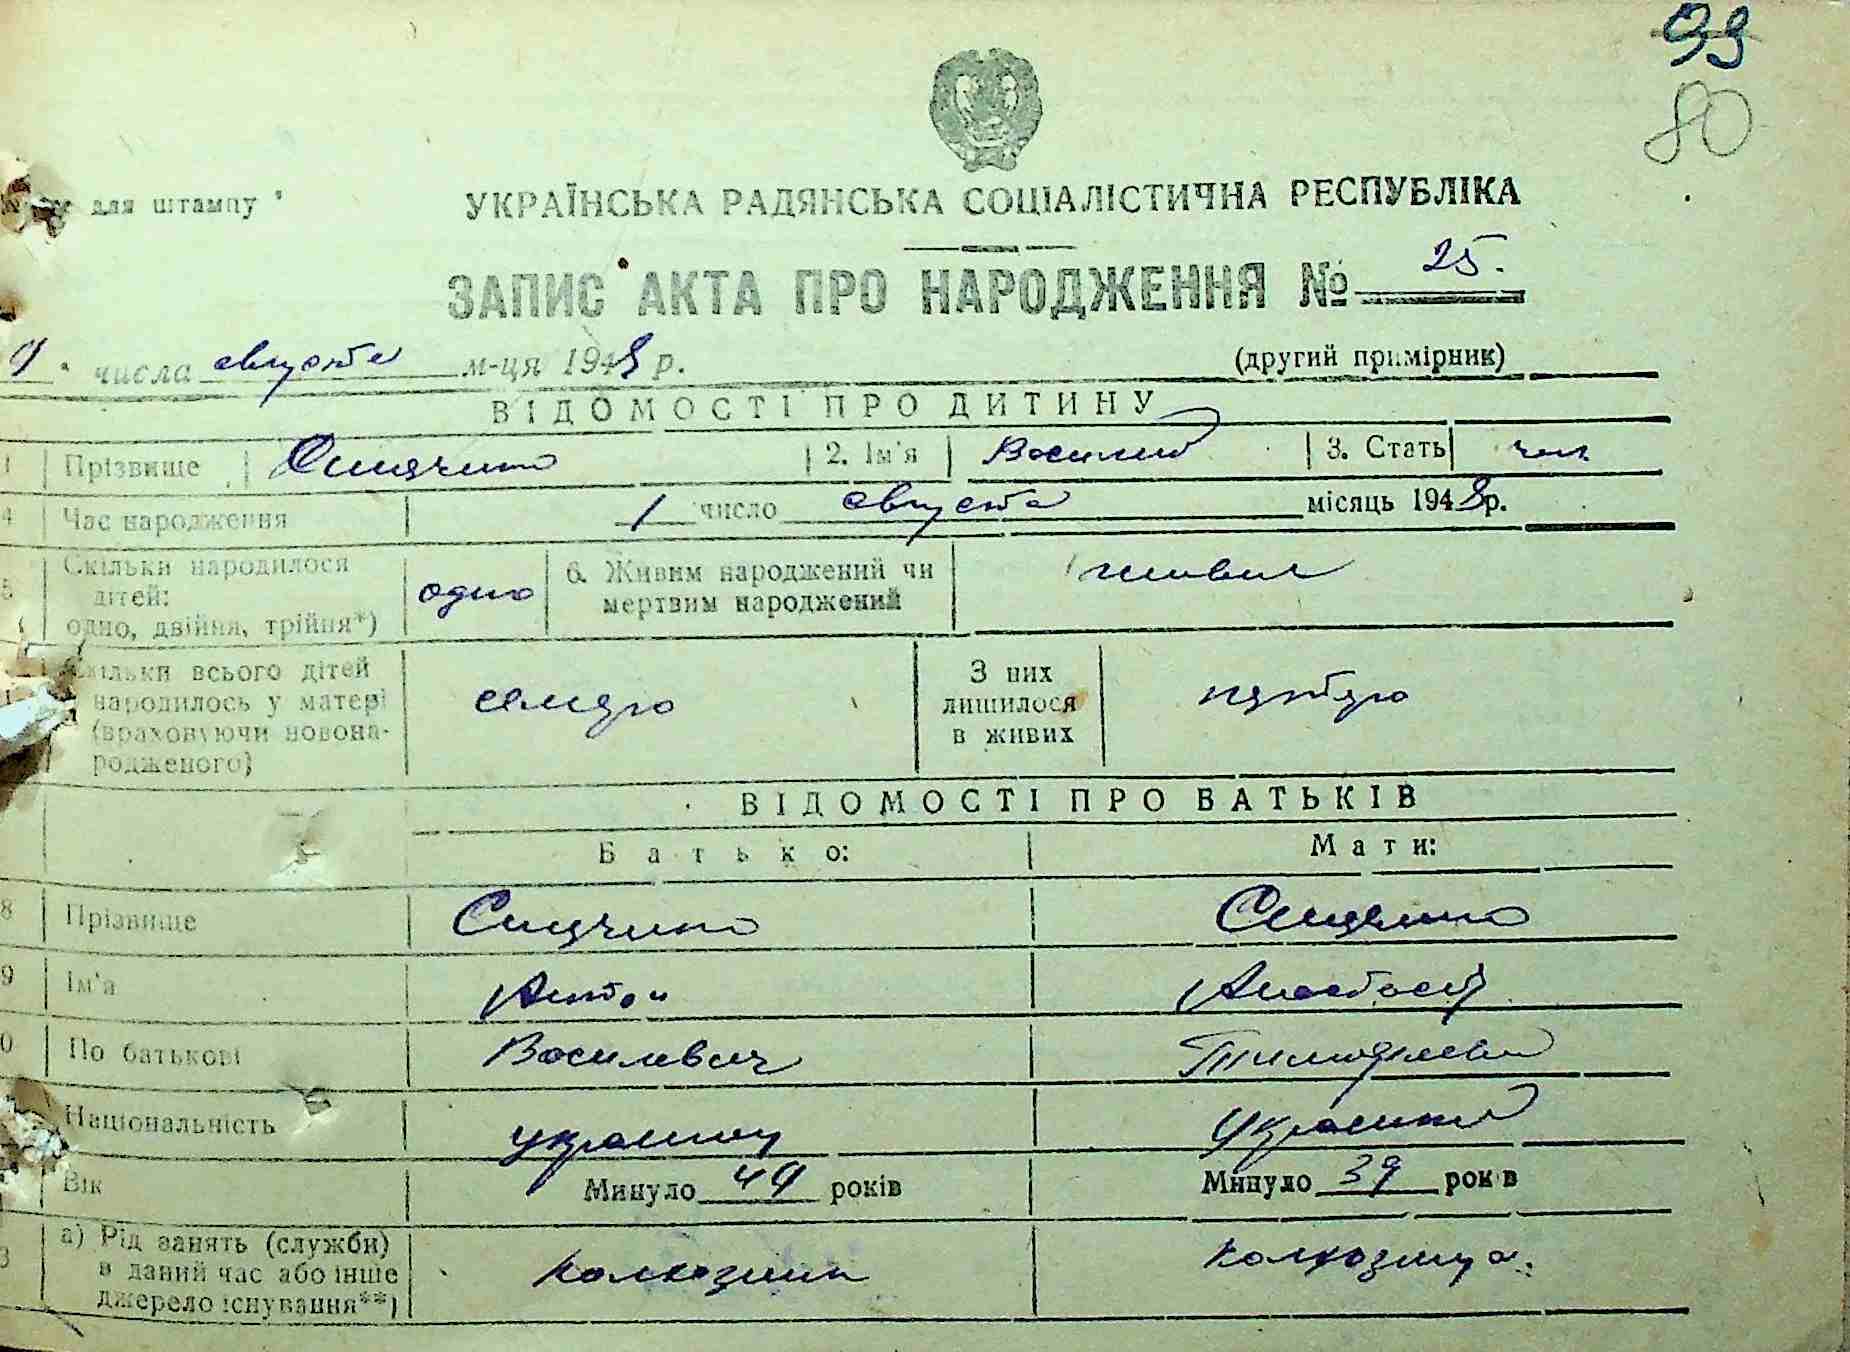 99
80
для штампу
УКРАЇНСЬКА РАДЯНСЬКА СОЦІАЛІСТИЧНА РЕСПУБЛІКА
ЗАПИС АКТА ПРО НАРОДЖЕННЯ № 25.
9 числа августа м-ця 1948 р. (другий примірник)
ВІДОМОСТІ ПРО ДИТИНУ
1 Прізвище 2. Ім'я Василий 3. Стать чол.
4 Час народження 1 число августа місяць 1948 р.
5 Скільки народилося дітей: одно, двійня, трійня*) одно 6. Живим народжений чи мертвим народжений живим
Скільки всього дітей народилось у матері (враховуючи новонародженого) З них лишилося в живих
ВІДОМОСТІ ПРО БАТЬКІВ
Батько: Мати:
8 Прізвище
9 Ім'я Антон Анастасія
0 По батькові Василевич
Національність украинец
Вік Минуло 49 років Минуло 39 років
3 а) Рід занять (служби) в даний час або інше джерело існування**) колхозник колхозница.